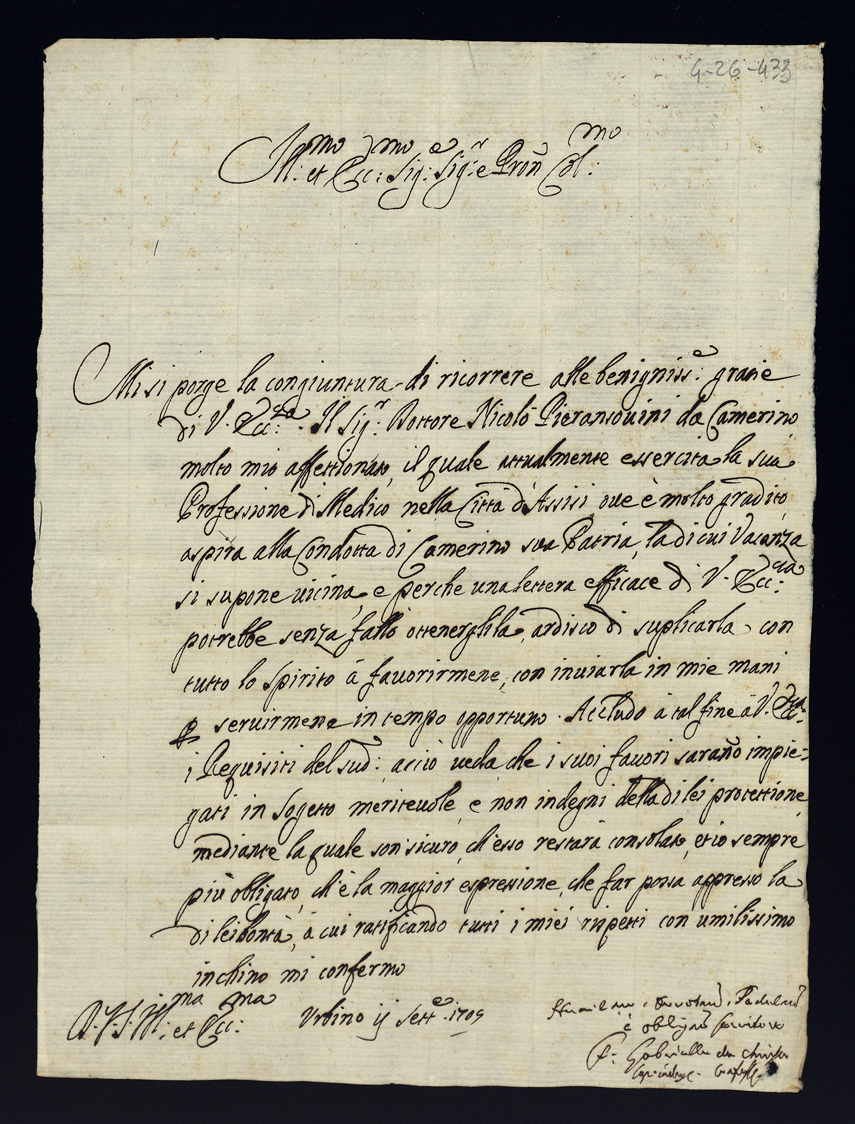 4-26-433
Ill:mo et Ecc:mo Sig:e Sig:r e Pron Col:mo
Mi si porge la congiuntura di ricorrere alle benigniss:e gratie
di V. Ecc:za. Il Sig:r Dottore Nicolò Pieransovini da Camerino,
molto mio affettionato, il quale attualmente essercita la sua
Professione di Medico nella Città d'Assisi, ove è molto gradito,
aspira alla Condotta di Camerino sua Patria, la di cui Vacanza
si supone vicina, e perche una lettera efficace di V. Ecc:za
potrebbe senza fallo ottenerglila, ardisco di suplicarla con
tutto lo spirito à favorirmene, con inviarla in mie mani
p servirmene in tempo opportuno. Accludo à tal fine à V. Ecc:za
i Requisiti del sud:, acciò veda che i suoi favori sarano impie=
gati in sogetto meritevole, e non indegni della di lei protettione,
mediante la quale son sicuro, ch'esso restarà consolato, et io sempre
più obligato, ch'è la maggior espressione, che far possa appresso la
di lei bontà, à cui ratificando tutti i miei rispetti con umilissimo
inchino mi confermo
D. V. S. Ill:ma et Ecc:ma Urbino ij Sett:e 1709
è obligat Servitore
F. Gabrielle da